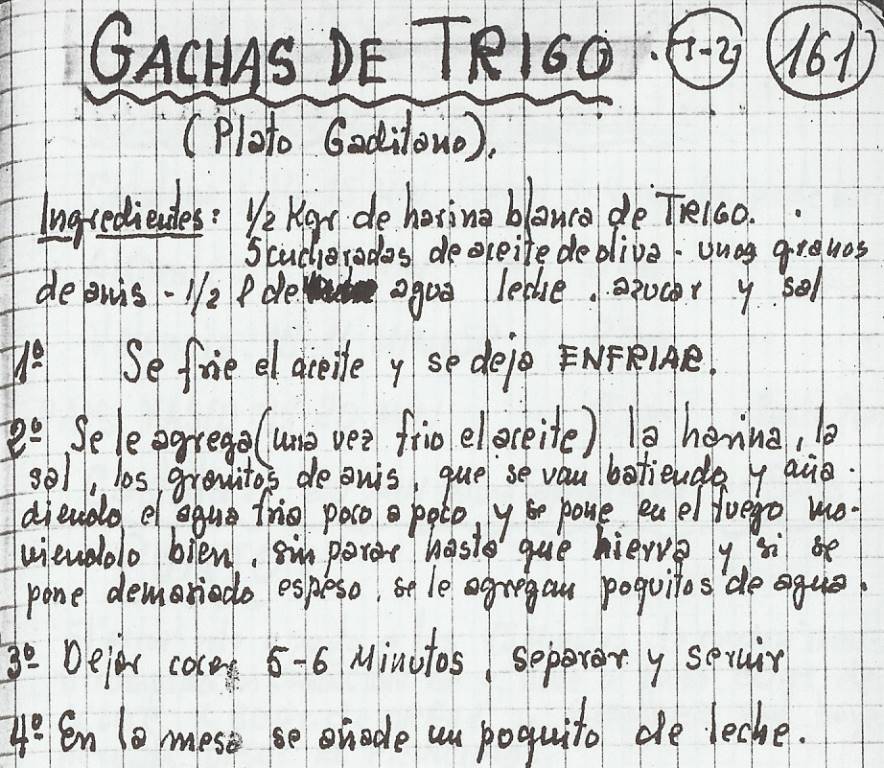 GACHAS DE TRIGO. 161
(Plato Gaditano).
Ingredientes: 1/2 Kgr de harina blanca de TRIGO.
5 cucharadas de aceite de oliva - unos granos
de anis - 1/2 l de agua leche. azucar y sal
1º Se frie el aceite y se deja ENFRIAR.
2º Se le agrega (una vez frio el aceite) la harina, la
sal, los granitos de anis, que se van batiendo y aña-
diendo el agua fria poco a poco, y se pone en el fuego mo-
viendolo bien, sin parar hasta que hierva y si se
pone demasiado espeso, se le agregan poquitos de agua.
3º Dejar cocer 5-6 Minutos, separar y servir
4º En la mesa se añade un poquito de leche.